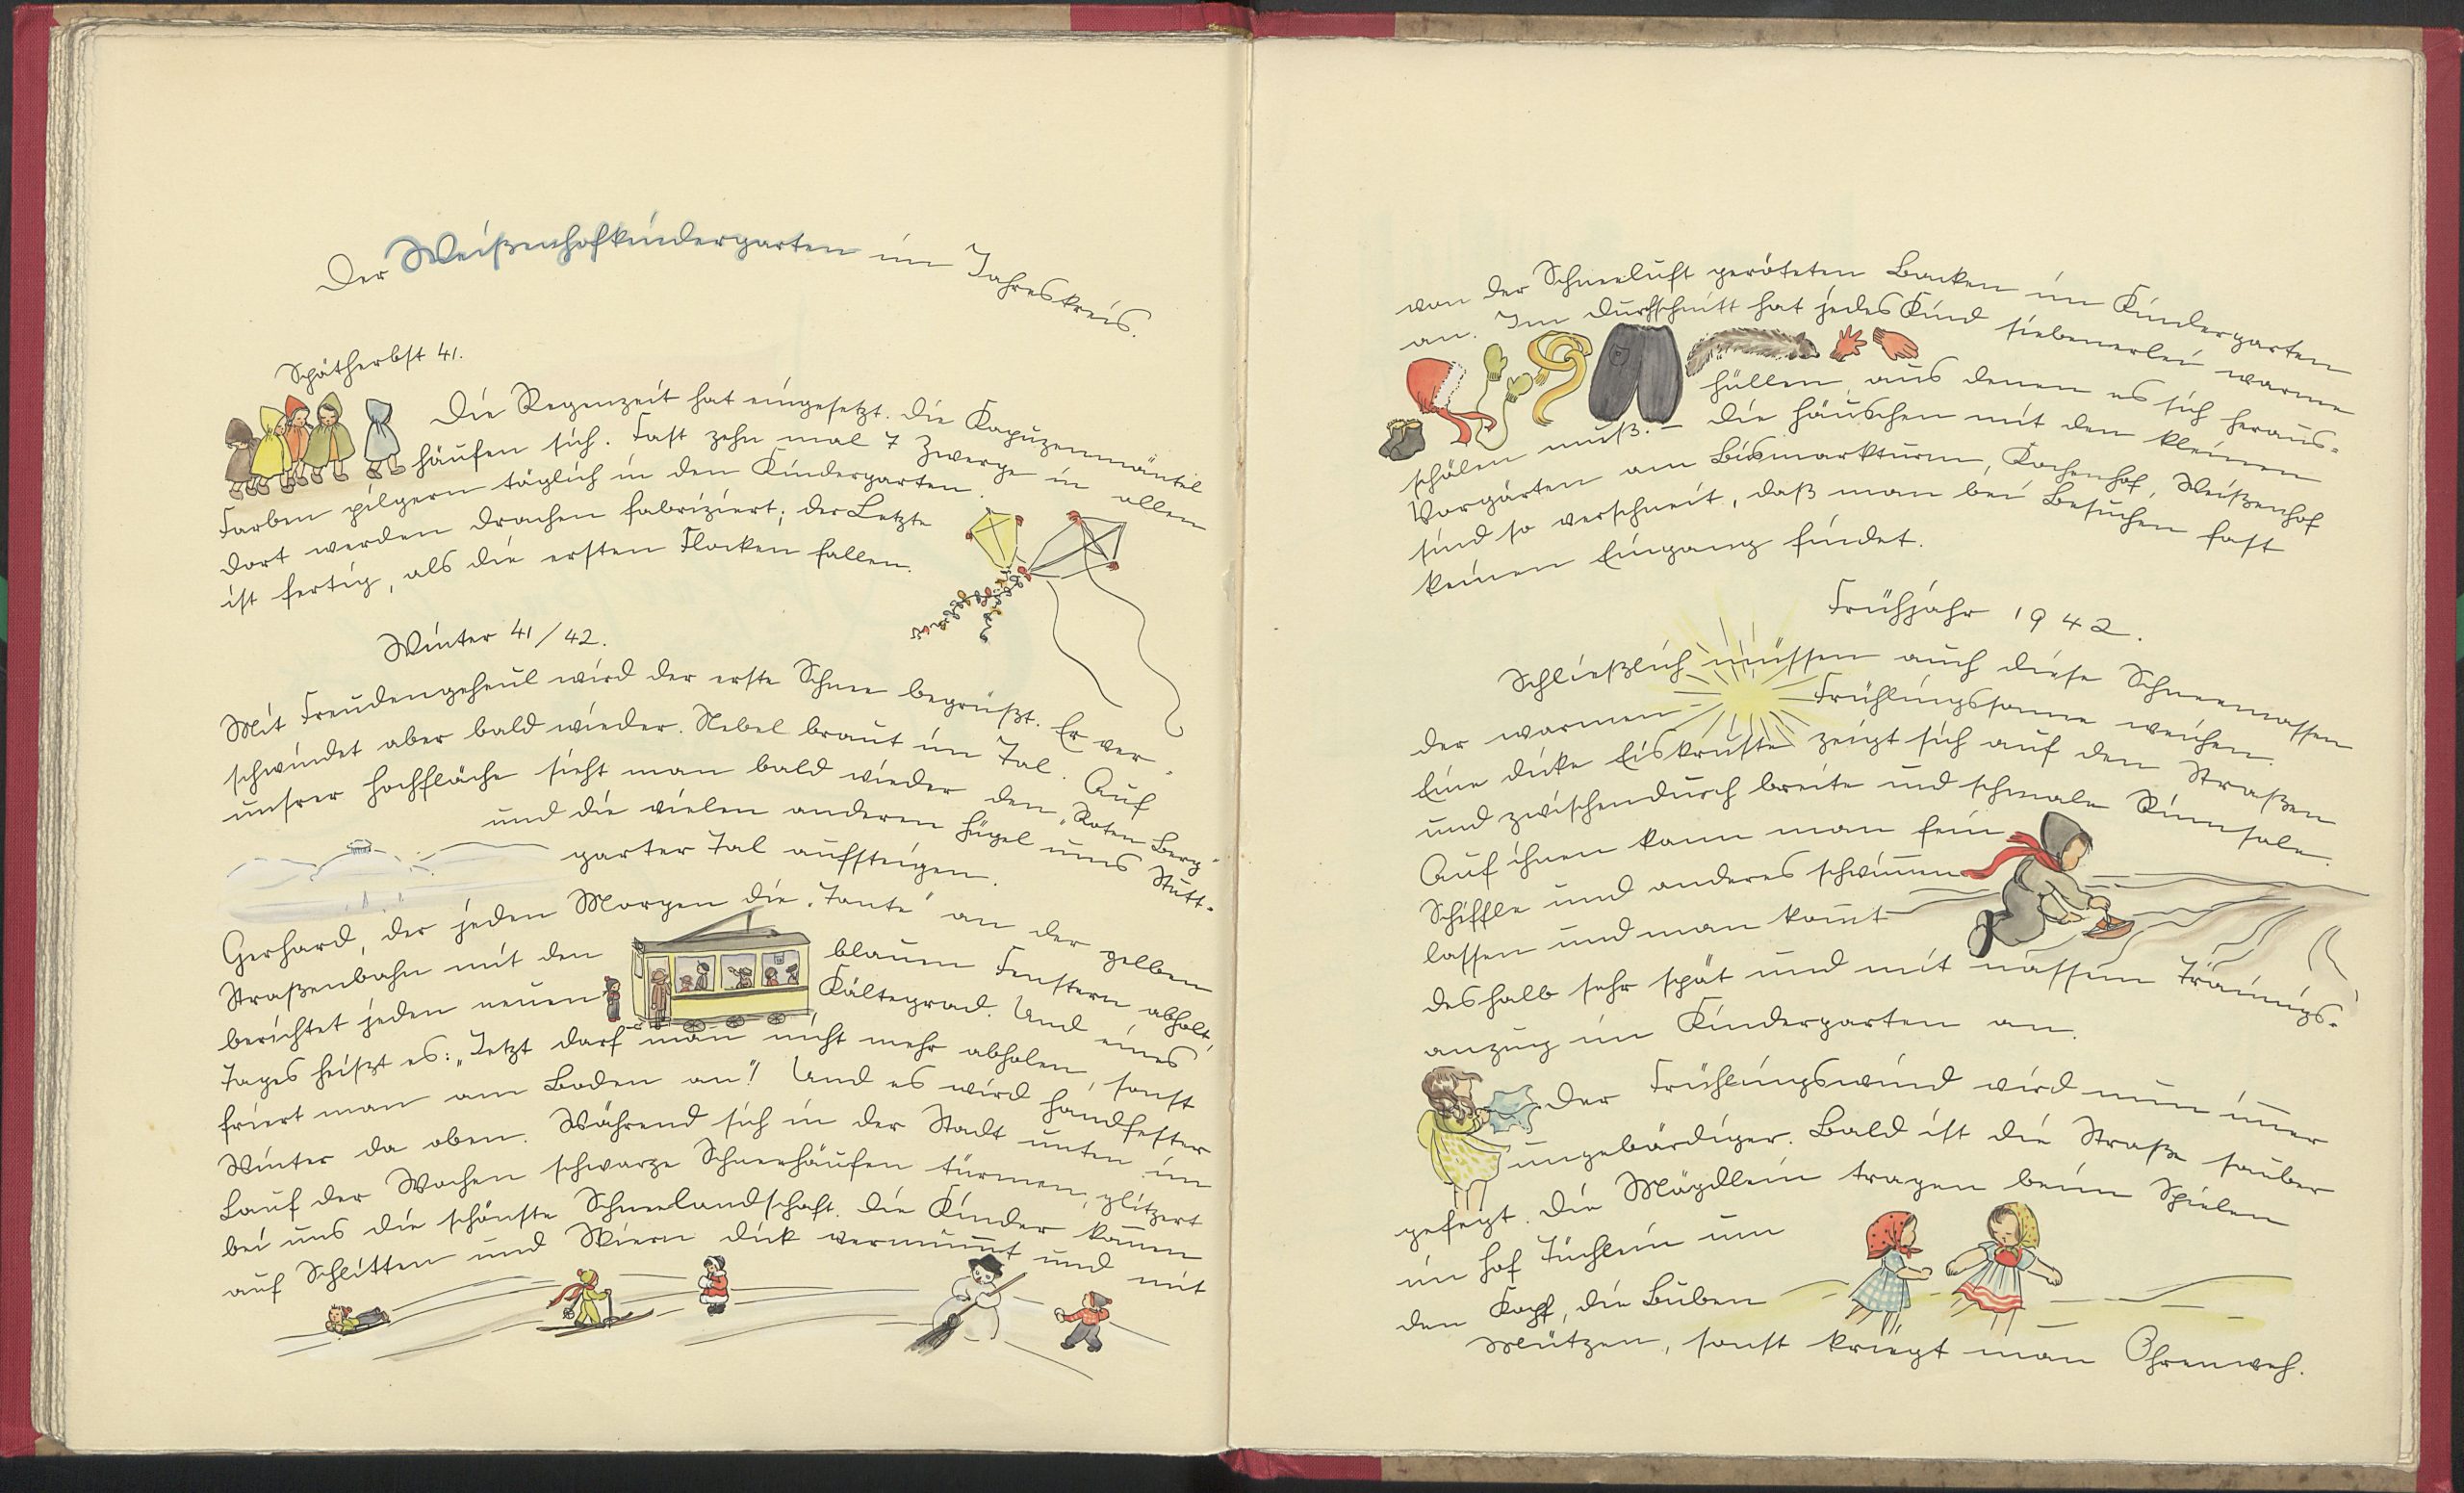 Der Weißenhofkindergarten im Jahreskreis.
Spätherbst 41.
Die Regenzeit hat eingesetzt. Die Kapuzenmäntel
häufen sich. Fast zehn mal 7 Zwerge in allen
Farben pilgern täglich in den Kindergarten.
Dort werden Drachen fabriziert; der Letzte
ist fertig, als die ersten Flocken fallen.
Winter 41/42.
Mit Freudengeheul wird der erste Schnee begrüßt. Er ver-
schwindet aber bald wieder. Nebel braut im Tal. Auf
unsrer Hochfläche sieht man bald wieder den „Roten Berg"
und die vielen anderen Hügel ums Stutt-
garter Tal aufsteigen.
Gerhard, der jeden Morgen die „Tante" an der gelben
Straßenbahn mit den blauen Fenstern abholt,
berichtet jeden neuen Kältegrad. Und eines
Tages heißt es: „Jetzt darf man nicht mehr abholen, sonst
friert man am Boden an"! Und es wird handfester
Winter da oben. Während sich in der Stadt unten im
Lauf der Wochen schwarze Schneehäufen türmen, glitzert
bei uns die schönste Schneelandschaft. Die Kinder kom̅en
auf Schlitten und Skiern dick vermum̅t und mit
von der Schneeluft geröteten Backen im Kindergarten
an. Im Durchschnitt hat jedes Kind siebenerlei warme
Hüllen, aus denen es sich heraus-
schälen muß. – Die Häuschen mit den kleinen
Vorgärten am Bismarkturm, Kochenhof, Weißenhof
sind so verschneit, daß man bei Besuchen fast
keinen Eingang findet.
Frühjahr 1942.
Schließlich müssen auch diese Schneemassen
der warmen Frühlingssonne weichen.
Eine dicke Eiskruste zeigt sich auf den Straßen
und zwischendurch breite und schmale Rinnsale.
Auf ihnen kann man fein
Schiffle und anderes schwim̅en
lassen und man kom̅t
deshalb sehr spät und mit nassem Trainings-
anzug im Kindergarten an.
Der Frühlingswind wird nun im̅er
ungebärdiger. Bald ist die Straße sauber
gefegt. Die Mägdlein tragen beim Spielen
im Hof Tüchlein um
den Kopf, die Buben
Mützen, sonst kriegt man Ohrenweh.